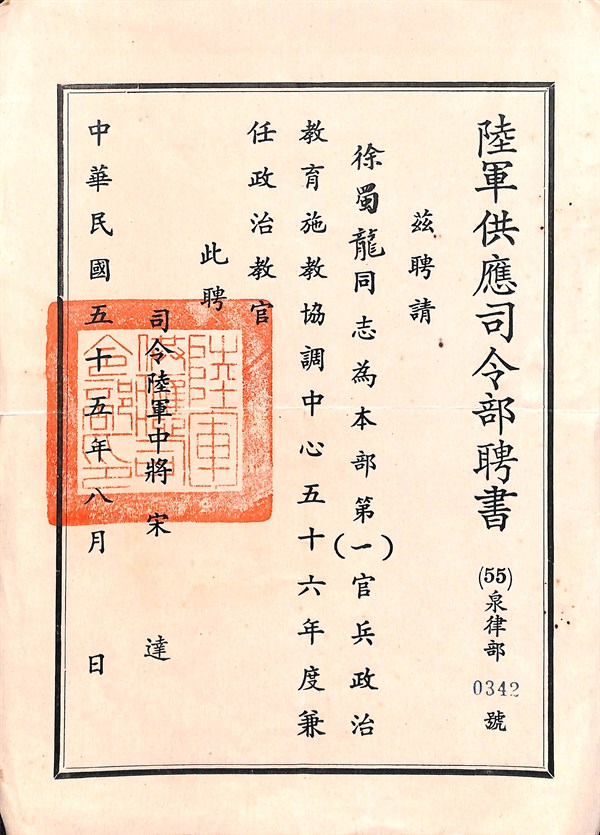 陸軍供應司令部聘書 (55)泉律部 0342 號
茲聘請
徐蜀龍同志為本部第(一)官兵政治
教育施教協調中心五十六年度兼
任政治教官
此聘
司令陸軍中將 宋 達
中華民國五十五年八月 日
陸軍
供應司
令部印